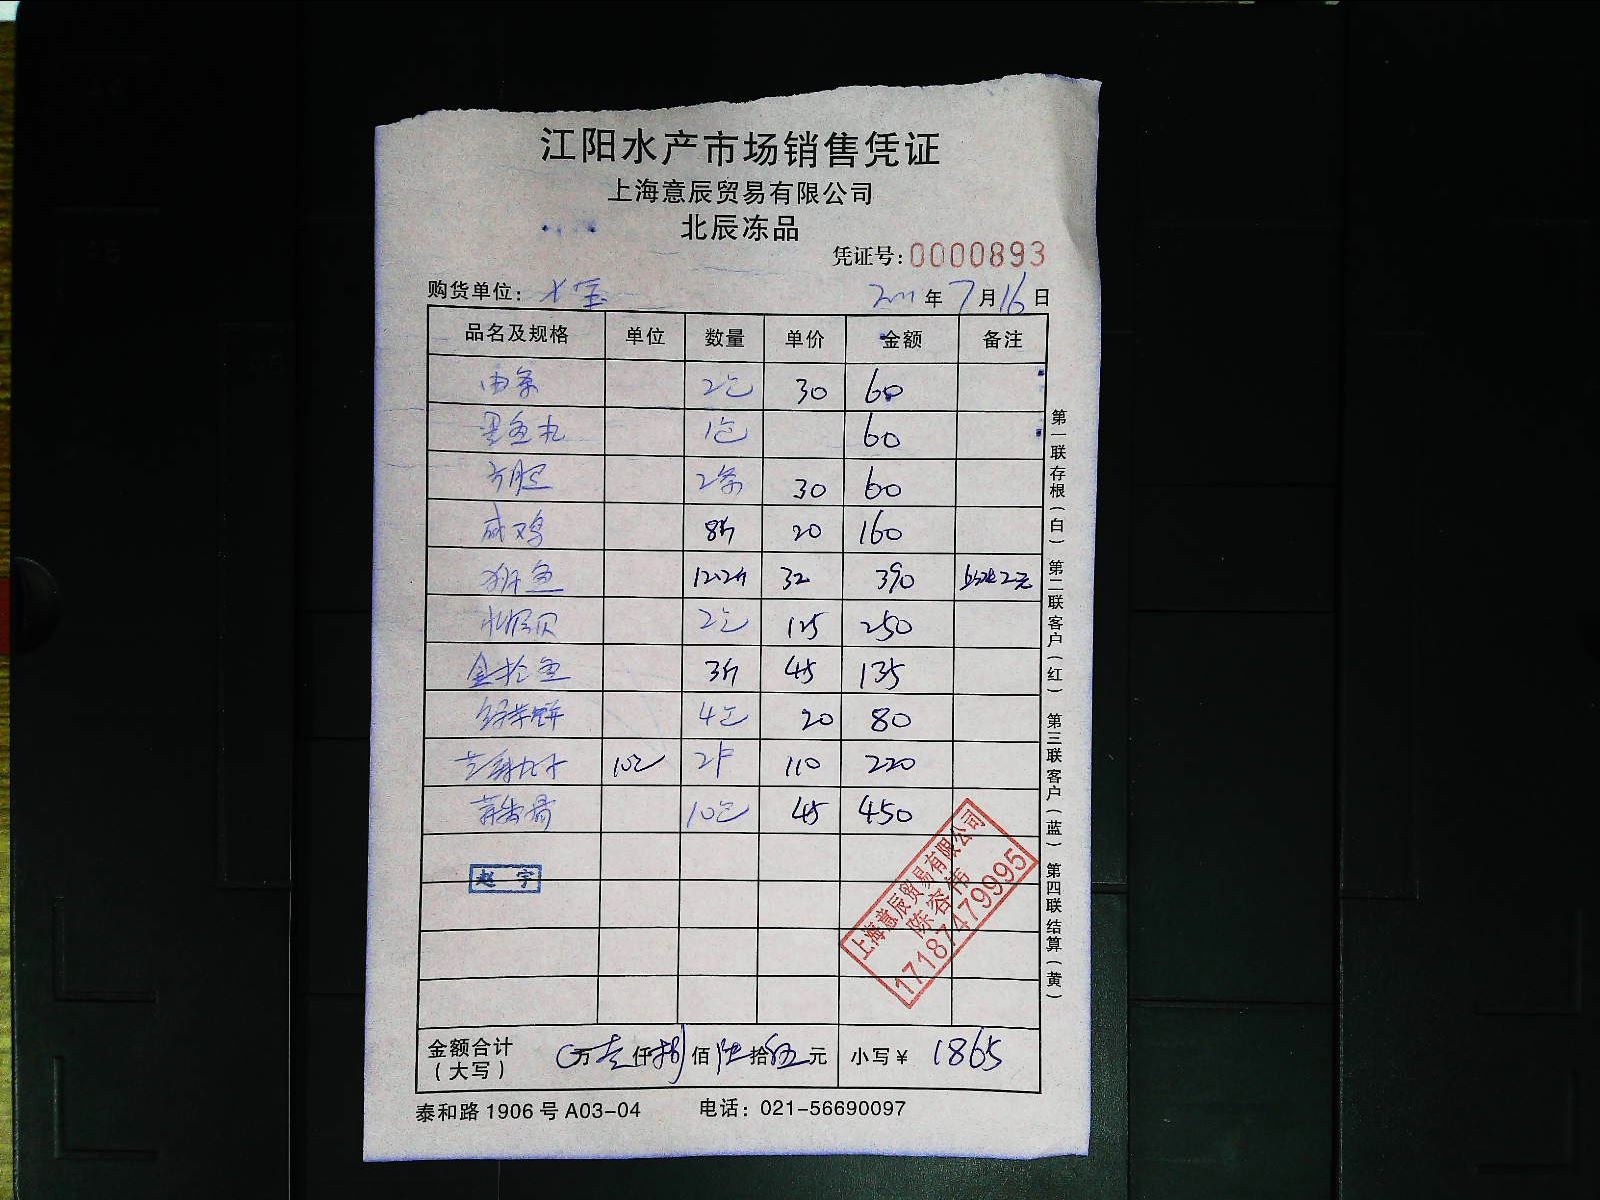 江阳水产市场销售凭证
上海意辰贸易有限公司
北辰冻品
凭证号:0000893
购货单位: 年7月16日
品名及规格 单位 数量 单价 金额 备注
2包 30 60
墨鱼丸 1包 60
2条 30 60
咸鸡 8斤 20 160
鱼 12.2斤 32 390
贝 2包 125 250
金枪鱼 3斤 45 135
4包 20 80
10包 2件 110 220
10包 45 450
赵宇
上海意辰贸易有限公司
陈容伟
17187479995
金额合计(大写) 0万壹仟捌佰陆拾伍元 小写¥ 1865
泰和路1906号A03-04 电话:021-56690097
第一联存根(白) 第二联客户(红) 第三联客户(蓝) 第四联结算(黄)